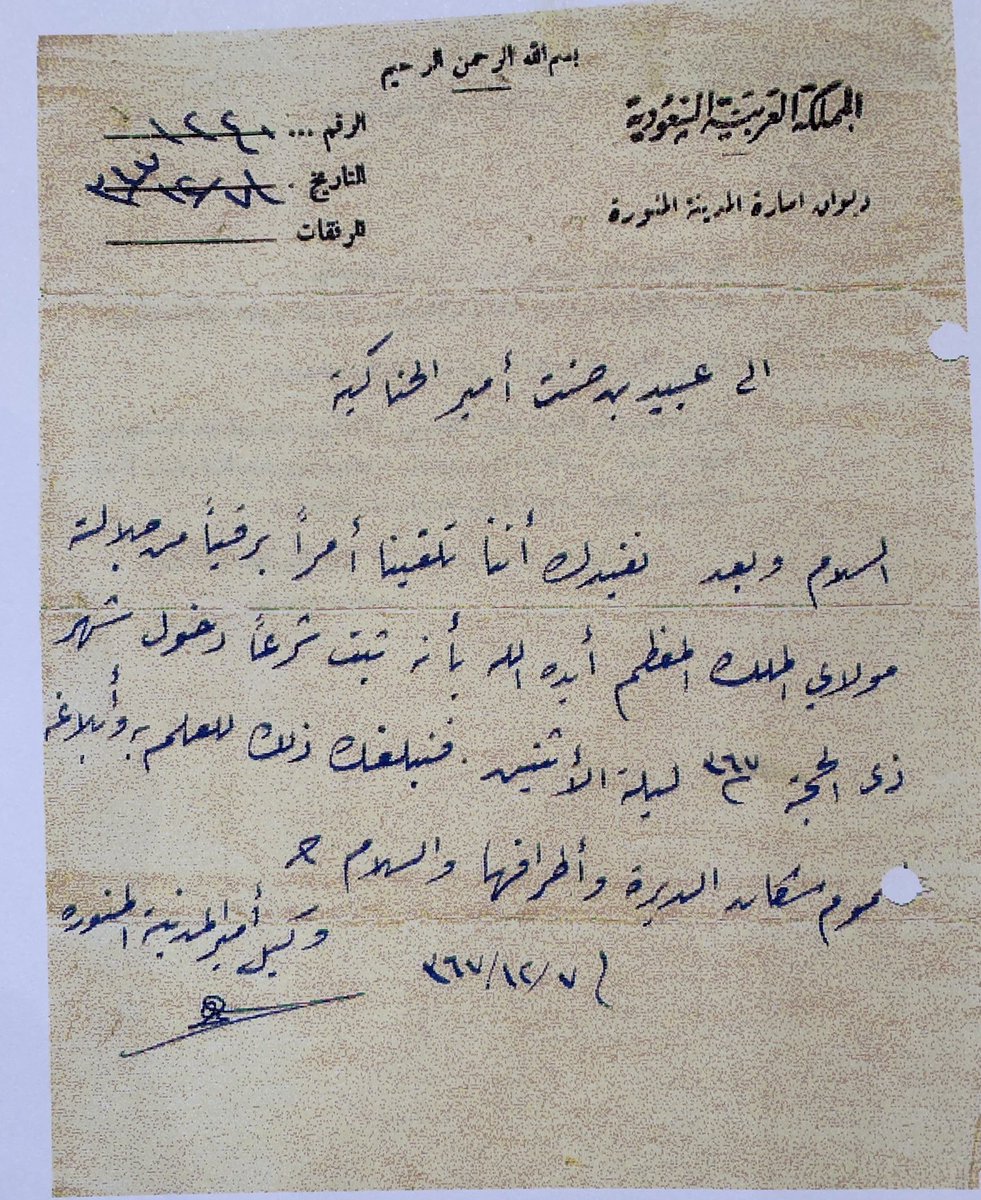 بسم الله الرحمن الرحيم
المملكة العربية السعودية
ديوان امارة المدينة المنورة
الرقم ...
التاريخ .
المرفقات
الى عبيد بن أمير الحناكية
السلام وبعد نفيدك أننا تلقينا أمراً برقياً من جلالة
مولاي الملك المعظم أيده الله بأنه ثبت شرعاً دخول شهر
ذى الحجة ٣٦٧ ليلة الأثنين . فنبلغك ذلك للعلم به وأبلاغه
سكان الديرة وأطرافها والسلام
٣٦٧/١٢/٧
وكيل أمير المدينة المنوره